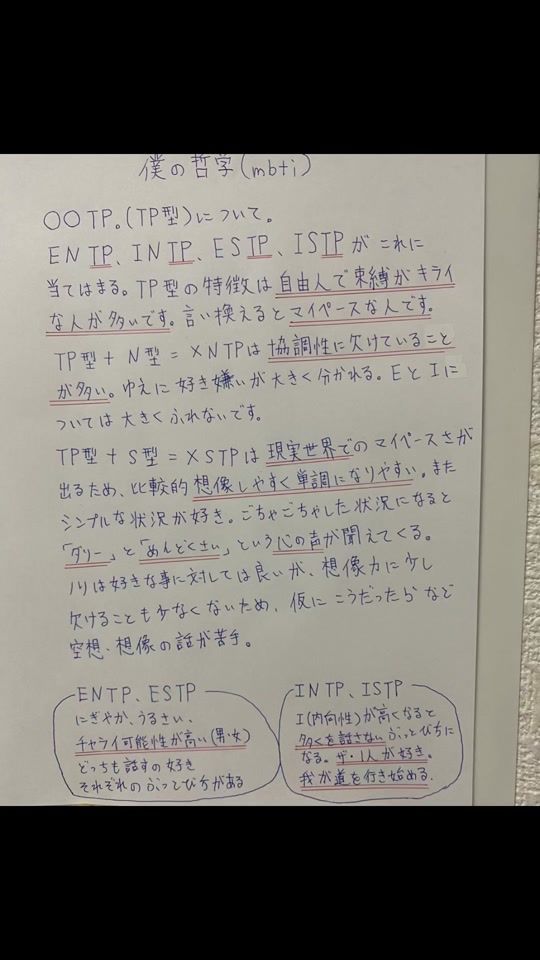 僕の哲学(mbti)
〇〇TP。(TP型)について。
ENTP、INTP、ESTP、ISTPがこれに
当てはまる。TP型の特徴は自由人で束縛がキライ
な人が多いです。言い換えるとマイペースな人です。
TP型+N型=×NTPは協調性に欠けていること
が多い。ゆえに好き嫌いが大きく分かれる。EとIに
ついては大きくふれないです。
TP型+S型=×STPは現実世界でのマイペースさが
出るため、比較的想像しやすく単調になりやすい。また
シンプルな状況が好き。ごちゃごちゃした状況になると
「ダリー」と「めんどくさい」という心の声が聞えてくる。
ノリは好きな事に対しては良いが、想像力に少し
欠けることも少なくないため、仮にこうだったらなど
空想・想像の話が苦手。
ENTP、ESTP
にぎやか、うるさい、
チャライ可能性が高い(男・女)
どっちも話すの好き
それぞれのぶっとび方がある
INTP、ISTP
I(内向性)が高くなると
多くを話さないぶっとび方に
なる。ザ・1人が好き。
我が道を行き始める.